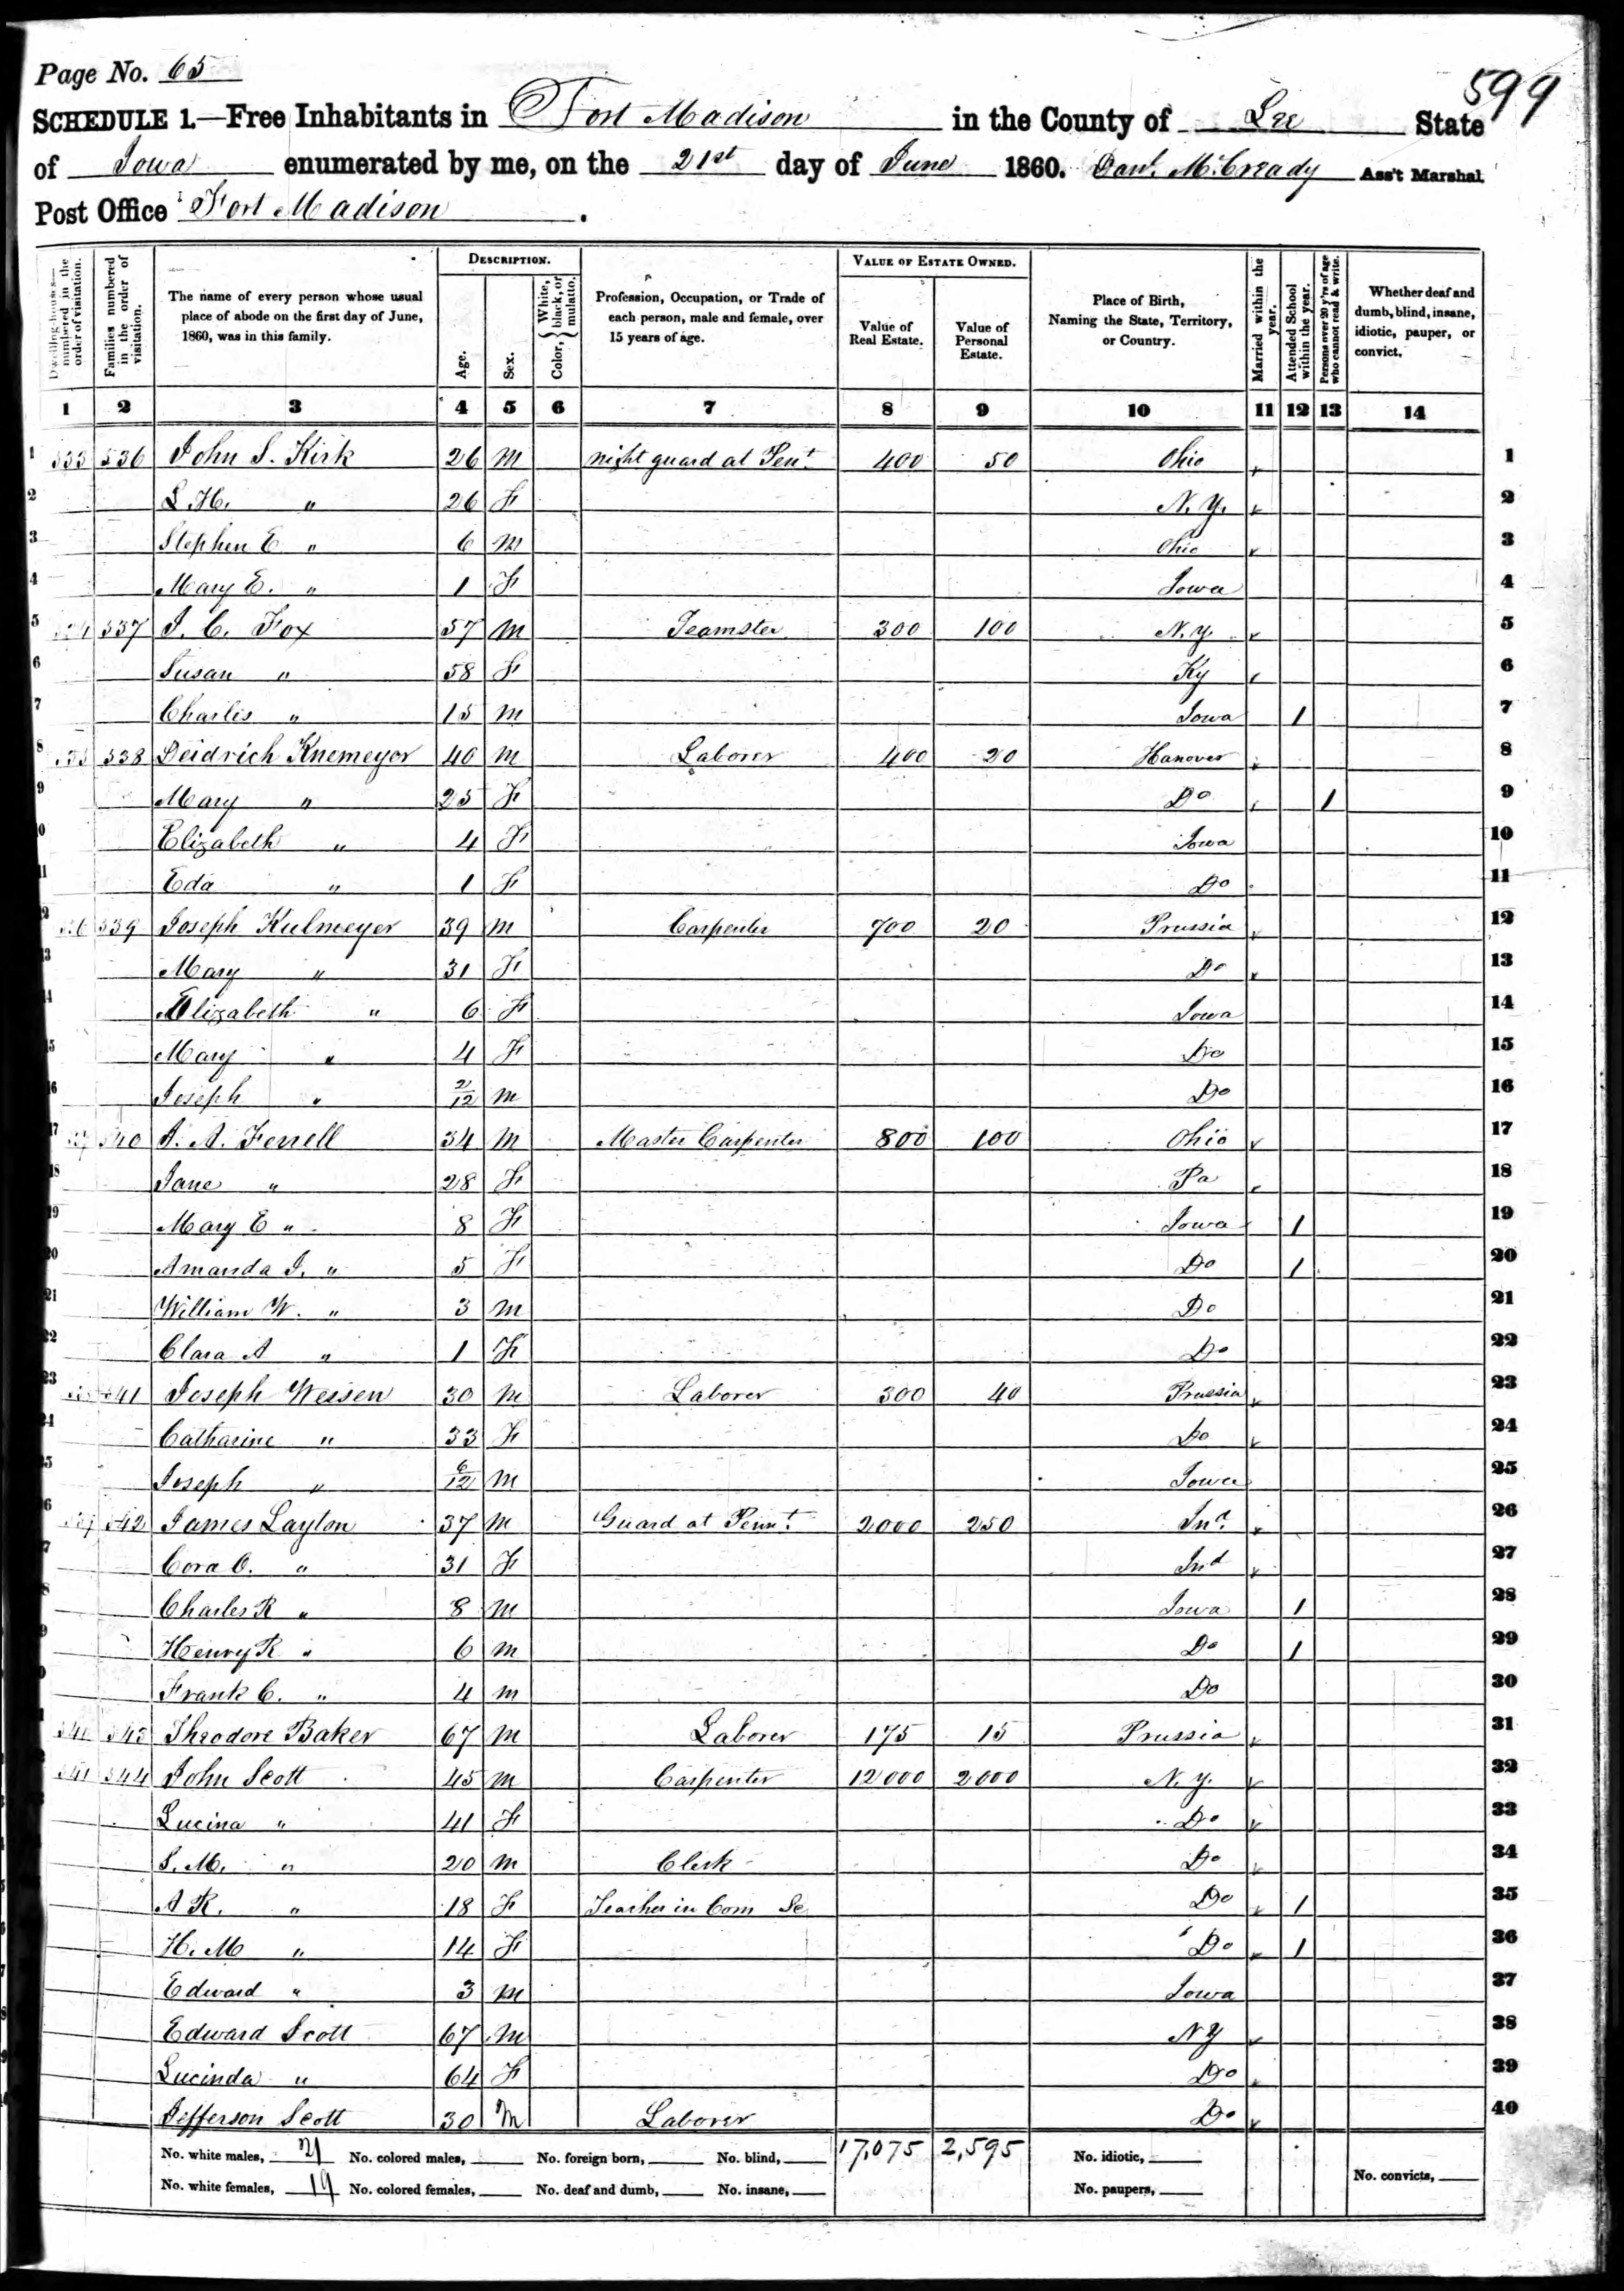 Page No. 65
599
SCHEDULE 1.—Free Inhabitants in Fort Madison in the County of Lee State
of Iowa enumerated by me, on the 21st day of June 1860. Danl. McCready Ass't Marshal.
Post Office Fort Madison.
Dwelling-houses—numbered in the order of visitation.
Families numbered in the order of visitation.
The name of every person whose usual place of abode on the first day of June, 1860, was in this family.
DESCRIPTION.
Age.
Sex.
Color, { White, black, or mulatto.
Profession, Occupation, or Trade of each person, male and female, over 15 years of age.
VALUE OF ESTATE OWNED.
Value of Real Estate.
Value of Personal Estate.
Place of Birth, Naming the State, Territory, or Country.
Married within the year.
Attended School within the year.
Persons over 20 y'rs of age who cannot read & write.
Whether deaf and dumb, blind, insane, idiotic, pauper, or convict.
1 2 3 4 5 6 7 8 9 10 11 12 13 14
1 533 536 John S. Kirk 26 M night guard at Pent. 400 50 Ohio 1
2 L. H. " 26 F N. Y. 2
3 Stephen E " 6 M Ohio 3
4 Mary E. " 1 F Iowa 4
5 537 J. C. Fox 57 M Teamster 300 100 N. Y. 5
6 Susan " 58 F Ky 6
7 Charlis " 15 M Iowa 1 7
8 538 Deidrich Knemeyer 40 M Laborer 400 20 Hanover 8
9 Mary " 25 F Do 1 9
Elizabeth " 4 F Iowa 10
Eda " 1 F Do 11
539 Joseph Kulmeyer 39 M Carpenter 700 20 Prussia 12
Mary " 31 F Do 13
Elizabeth " 6 F Iowa 14
Mary " 4 F Do 15
Joseph " 2/12 M Do 16
540 A. Ferrell 34 M Master Carpenter 800 100 Ohio 17
Jane " 28 F Pa 18
Mary E " 8 F Iowa 1 19
Amanda J. " 5 F Do 1 20
William W. " 3 M Do 21
Clara A " 1 F Do 22
541 Joseph Wessen 30 M Laborer 300 40 Prussia 23
Catharine " 33 F Do 24
Joseph " 6/12 M Iowa 25
542 James Layton 37 M Guard at Pent. 2000 250 Ind. 26
Cora O. " 31 F Ind 27
Charles R " 8 M Iowa 1 28
Henry R " 6 M Do 1 29
Frank C. " 4 M Do 30
540 543 Theodore Baker 67 M Laborer 175 15 Prussia 31
541 544 John Scott 45 M Carpenter 12000 2000 N. Y. 32
Lucina " 41 F Do 33
S. M. " 20 M Clerk Do 34
A R. " 18 F Teacher in Com Sc Do 1 35
H. M " 14 F Do 1 36
Edward " 3 M Iowa 37
Edward Scott 67 M N Y 38
Lucinda " 64 F Do 39
Jefferson Scott 30 M Laborer Do 40
No. white males, 21 No. colored males, No. foreign born, No. blind, 17,075 2,595 No. idiotic,
No. white females, 19 No. colored females, No. deaf and dumb, No. insane, No. paupers, No. convicts,